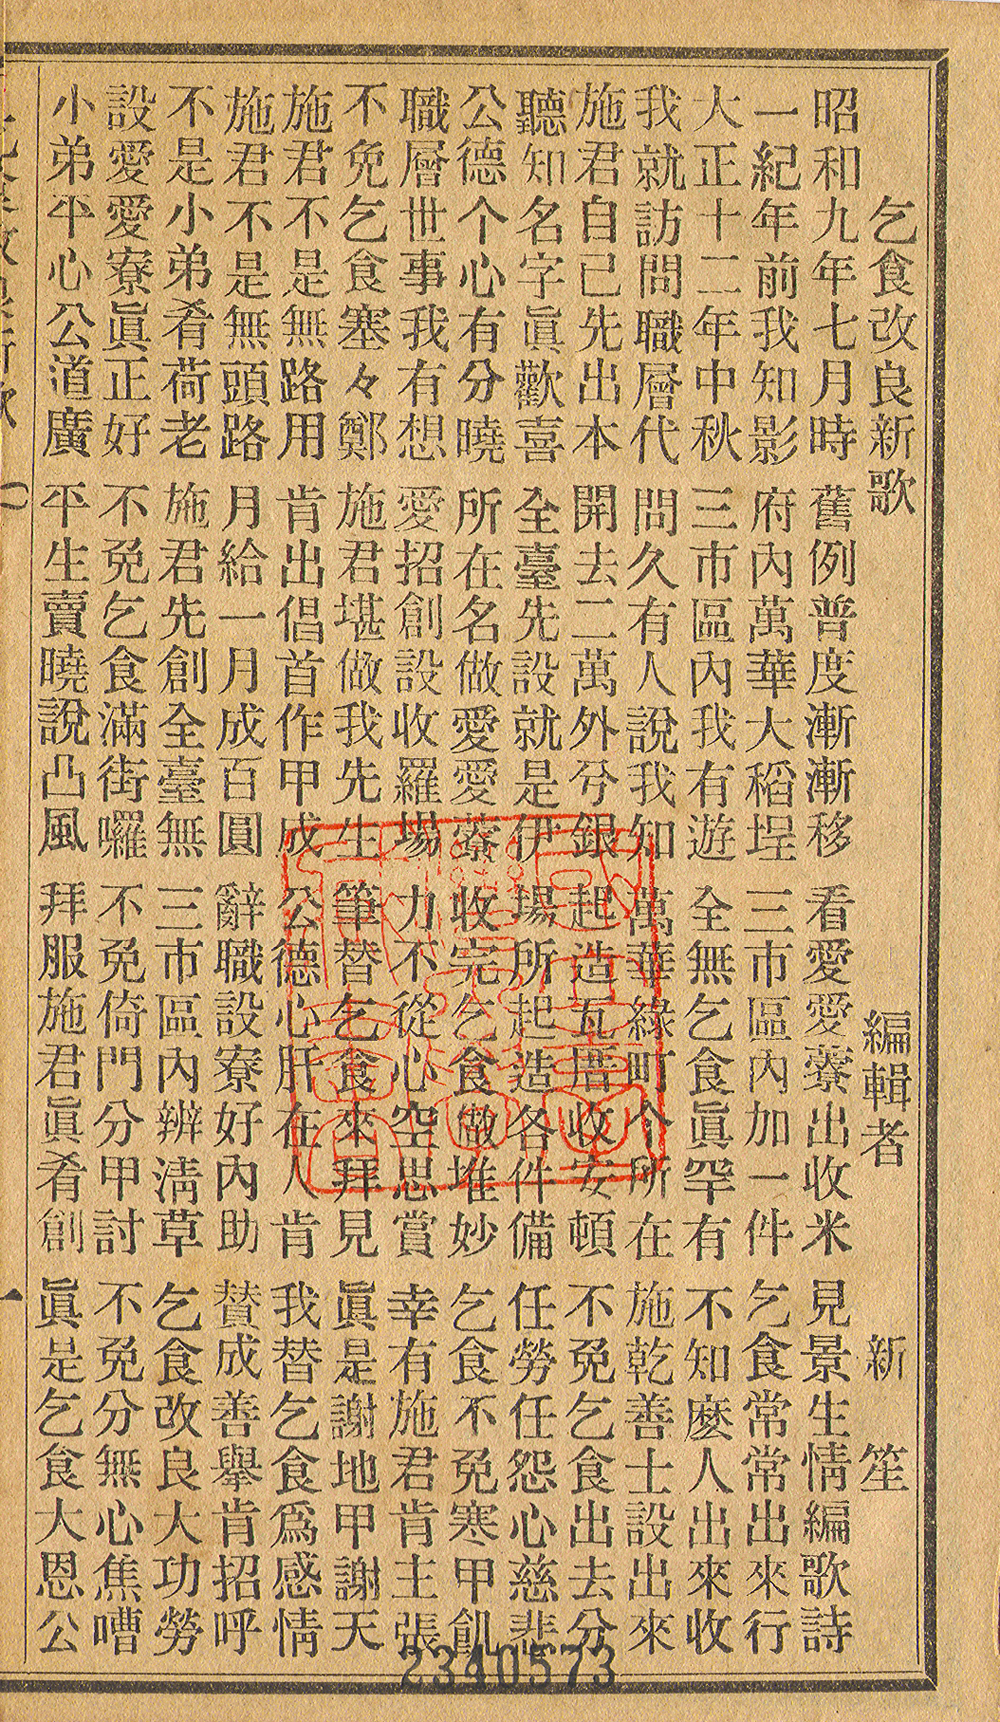 乞食改良新歌 編輯者 新 笙
昭和九年七月時 舊例普度漸漸移 看愛愛藔出收米 見景生情編歌詩
一紀年前我知影 府內萬華大稻埕 三市區內加一件 乞食常常出來行
大正十二年中秋 三市區內我有遊 全無乞食眞罕有 不知麼人出來收
我就訪問職層代 問久有人說我知 萬華綠町个所在 施乾善士設出來
施君自己先出本 開去二萬外兮銀 起造瓦厝收安頓 不免乞食出去分
聽知名字眞歡喜 全臺先設就是伊 場所起造各件備 任勞任怨心慈悲
公德个心有分曉 所在名做愛愛藔 收完乞食做堆妙 乞食不免寒甲飢
職層世事我有想 愛招創設收羅場 力不從心空思賞 幸有施君肯主張
不免乞食塞々鄭 施君堪做我先生 筆替乞食來拜見 眞是謝地甲謝天
施君不是無路用 肯出倡首作甲成 公德心肝在人肯 我替乞食爲感情
施君不是無頭路 月給一月成百圓 辭職設寮好內助 贊成善舉肯招呼
不是小弟肴荷老 施君先創全臺無 三市區內辨淸草 乞食改良大功勞
設愛愛寮眞正好 不免乞食滿街囉 不免倚門分甲討 不免分無心焦嘈
小弟平心公道廣 平生賣曉說凸風 拜服施君眞肴創 眞是乞食大恩公
一
2340573